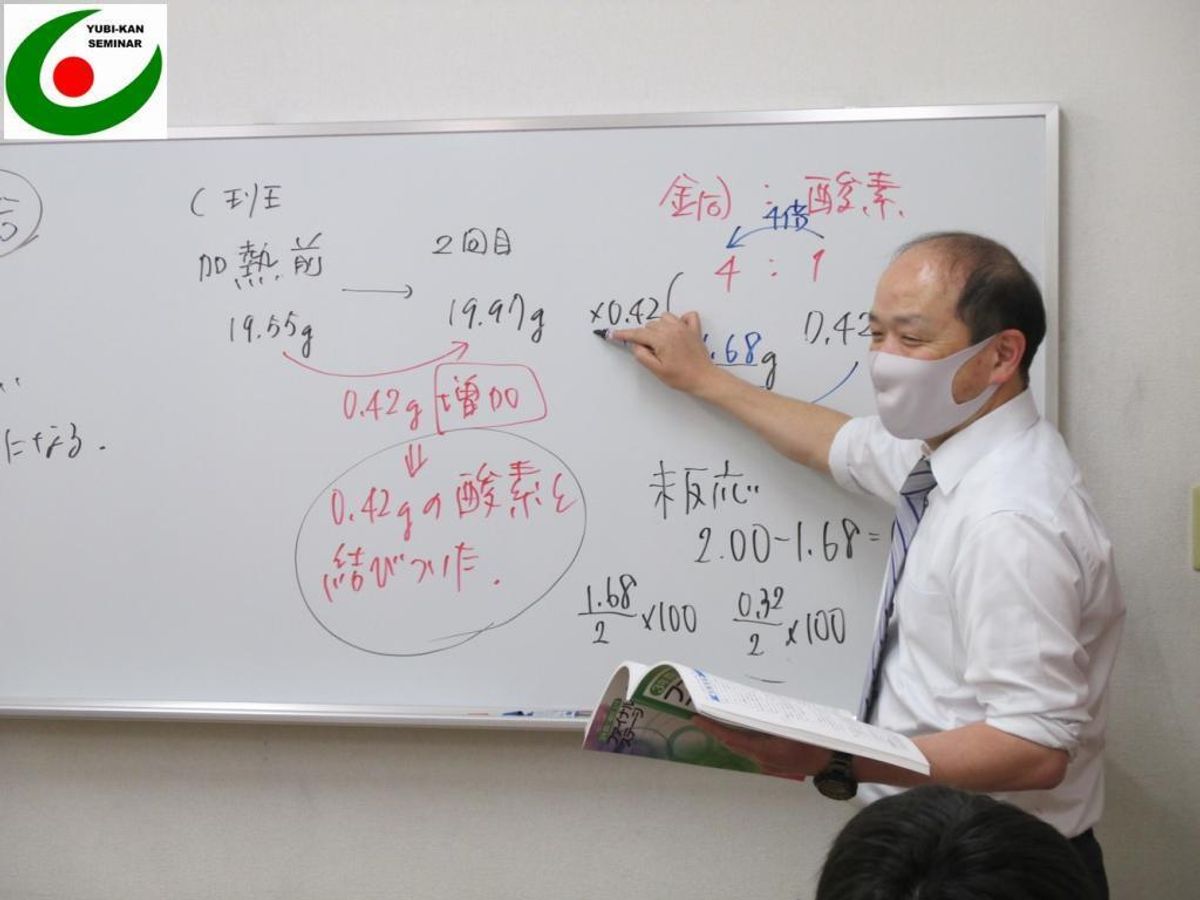 YUBI-KAN
SEMINAR
C班
加熱前
19.55g
2回目
19.97g
0.42g 増加
0.42gの酸素と
結びついた.
になる.
銅 : 酸素
4倍
4 : 1
×0.42
.68g
0.42
未反応
2.00-1.68=
1.68/2 ×100
0.32/2 ×100
ファイナル
ステージ